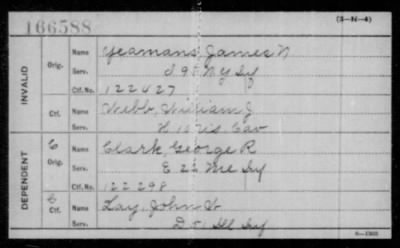 166588
(3-N-4)
INVALID
Orig.
Name Yeamans, James N
Serv. I 9" N.Y. Inf
Ctf. No. 122427
Ctf.
Name Webb, William J
Serv. H 1 Wis. Cav
DEPENDENT
C
Orig.
Name Clark, George R
Serv. E 22 Me Inf
Ctf. No. 122298
C
Ctf.
Name Lay, John W
Serv. D 51 Ill Inf